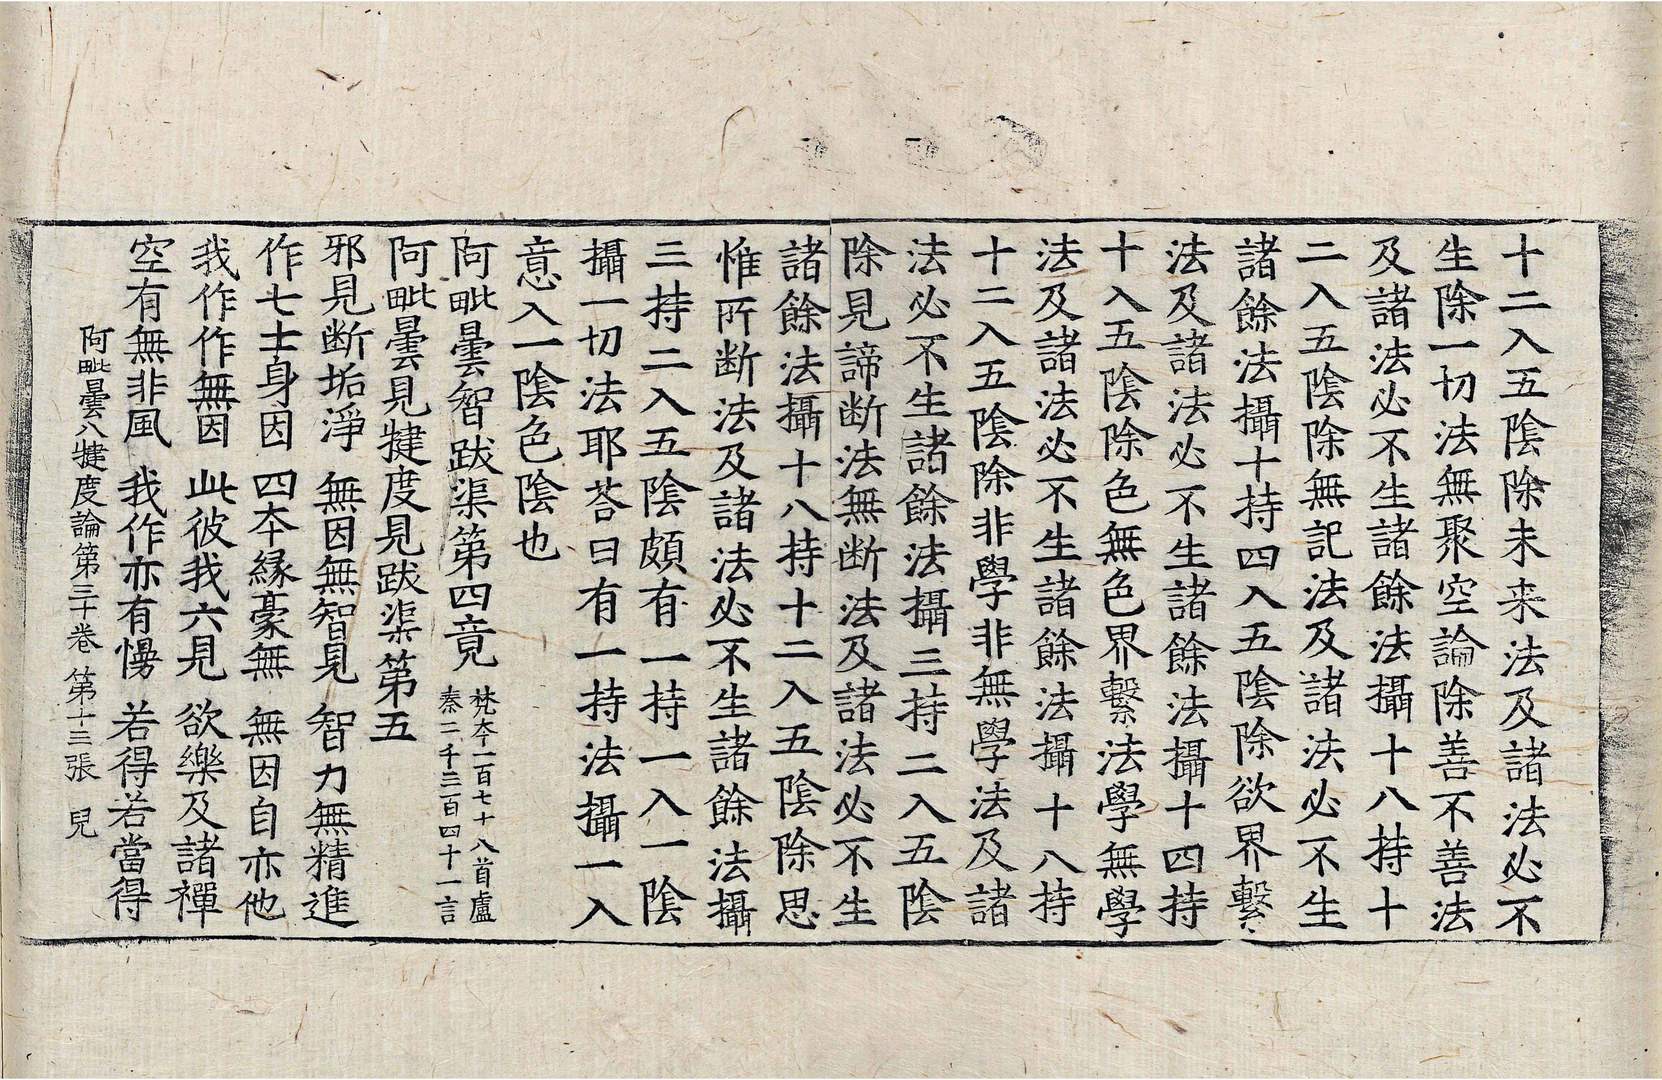 十二入五陰除未来法及諸法必不
生除一切法無聚空論除善不善法
及諸法必不生諸餘法攝十八持十
二入五陰除無記法及諸法必不生
諸餘法攝十持四入五陰除欲界繫
法及諸法必不生諸餘法攝十四持
十入五陰除色無色界繫法學無學
法及諸法必不生諸餘法攝十八持
十二入五陰除非學非無學法及諸
法必不生諸餘法攝三持二入五陰
除見諦断法無断法及諸法必不生
諸餘法攝十八持十二入五陰除思
惟所断法及諸法必不生諸餘法攝
三持二入五陰頗有一持一入一陰
攝一切法耶荅曰有一持法攝一入
意入一陰色陰也
阿毗曇智跋渠第四竟 梵夲一百七十八首盧
秦二千三百四十一言
阿毗曇見揵度見跋渠第五
邪見断垢淨 無因無智見 智力無精進
作七士身因 四夲縁豪無 無因自亦他
我作作無因 此彼我六見 欲樂及諸禪
空有無非風 我作亦有慢 若得若當得
阿毗曇八犍度論第三十卷 第十三張 兒